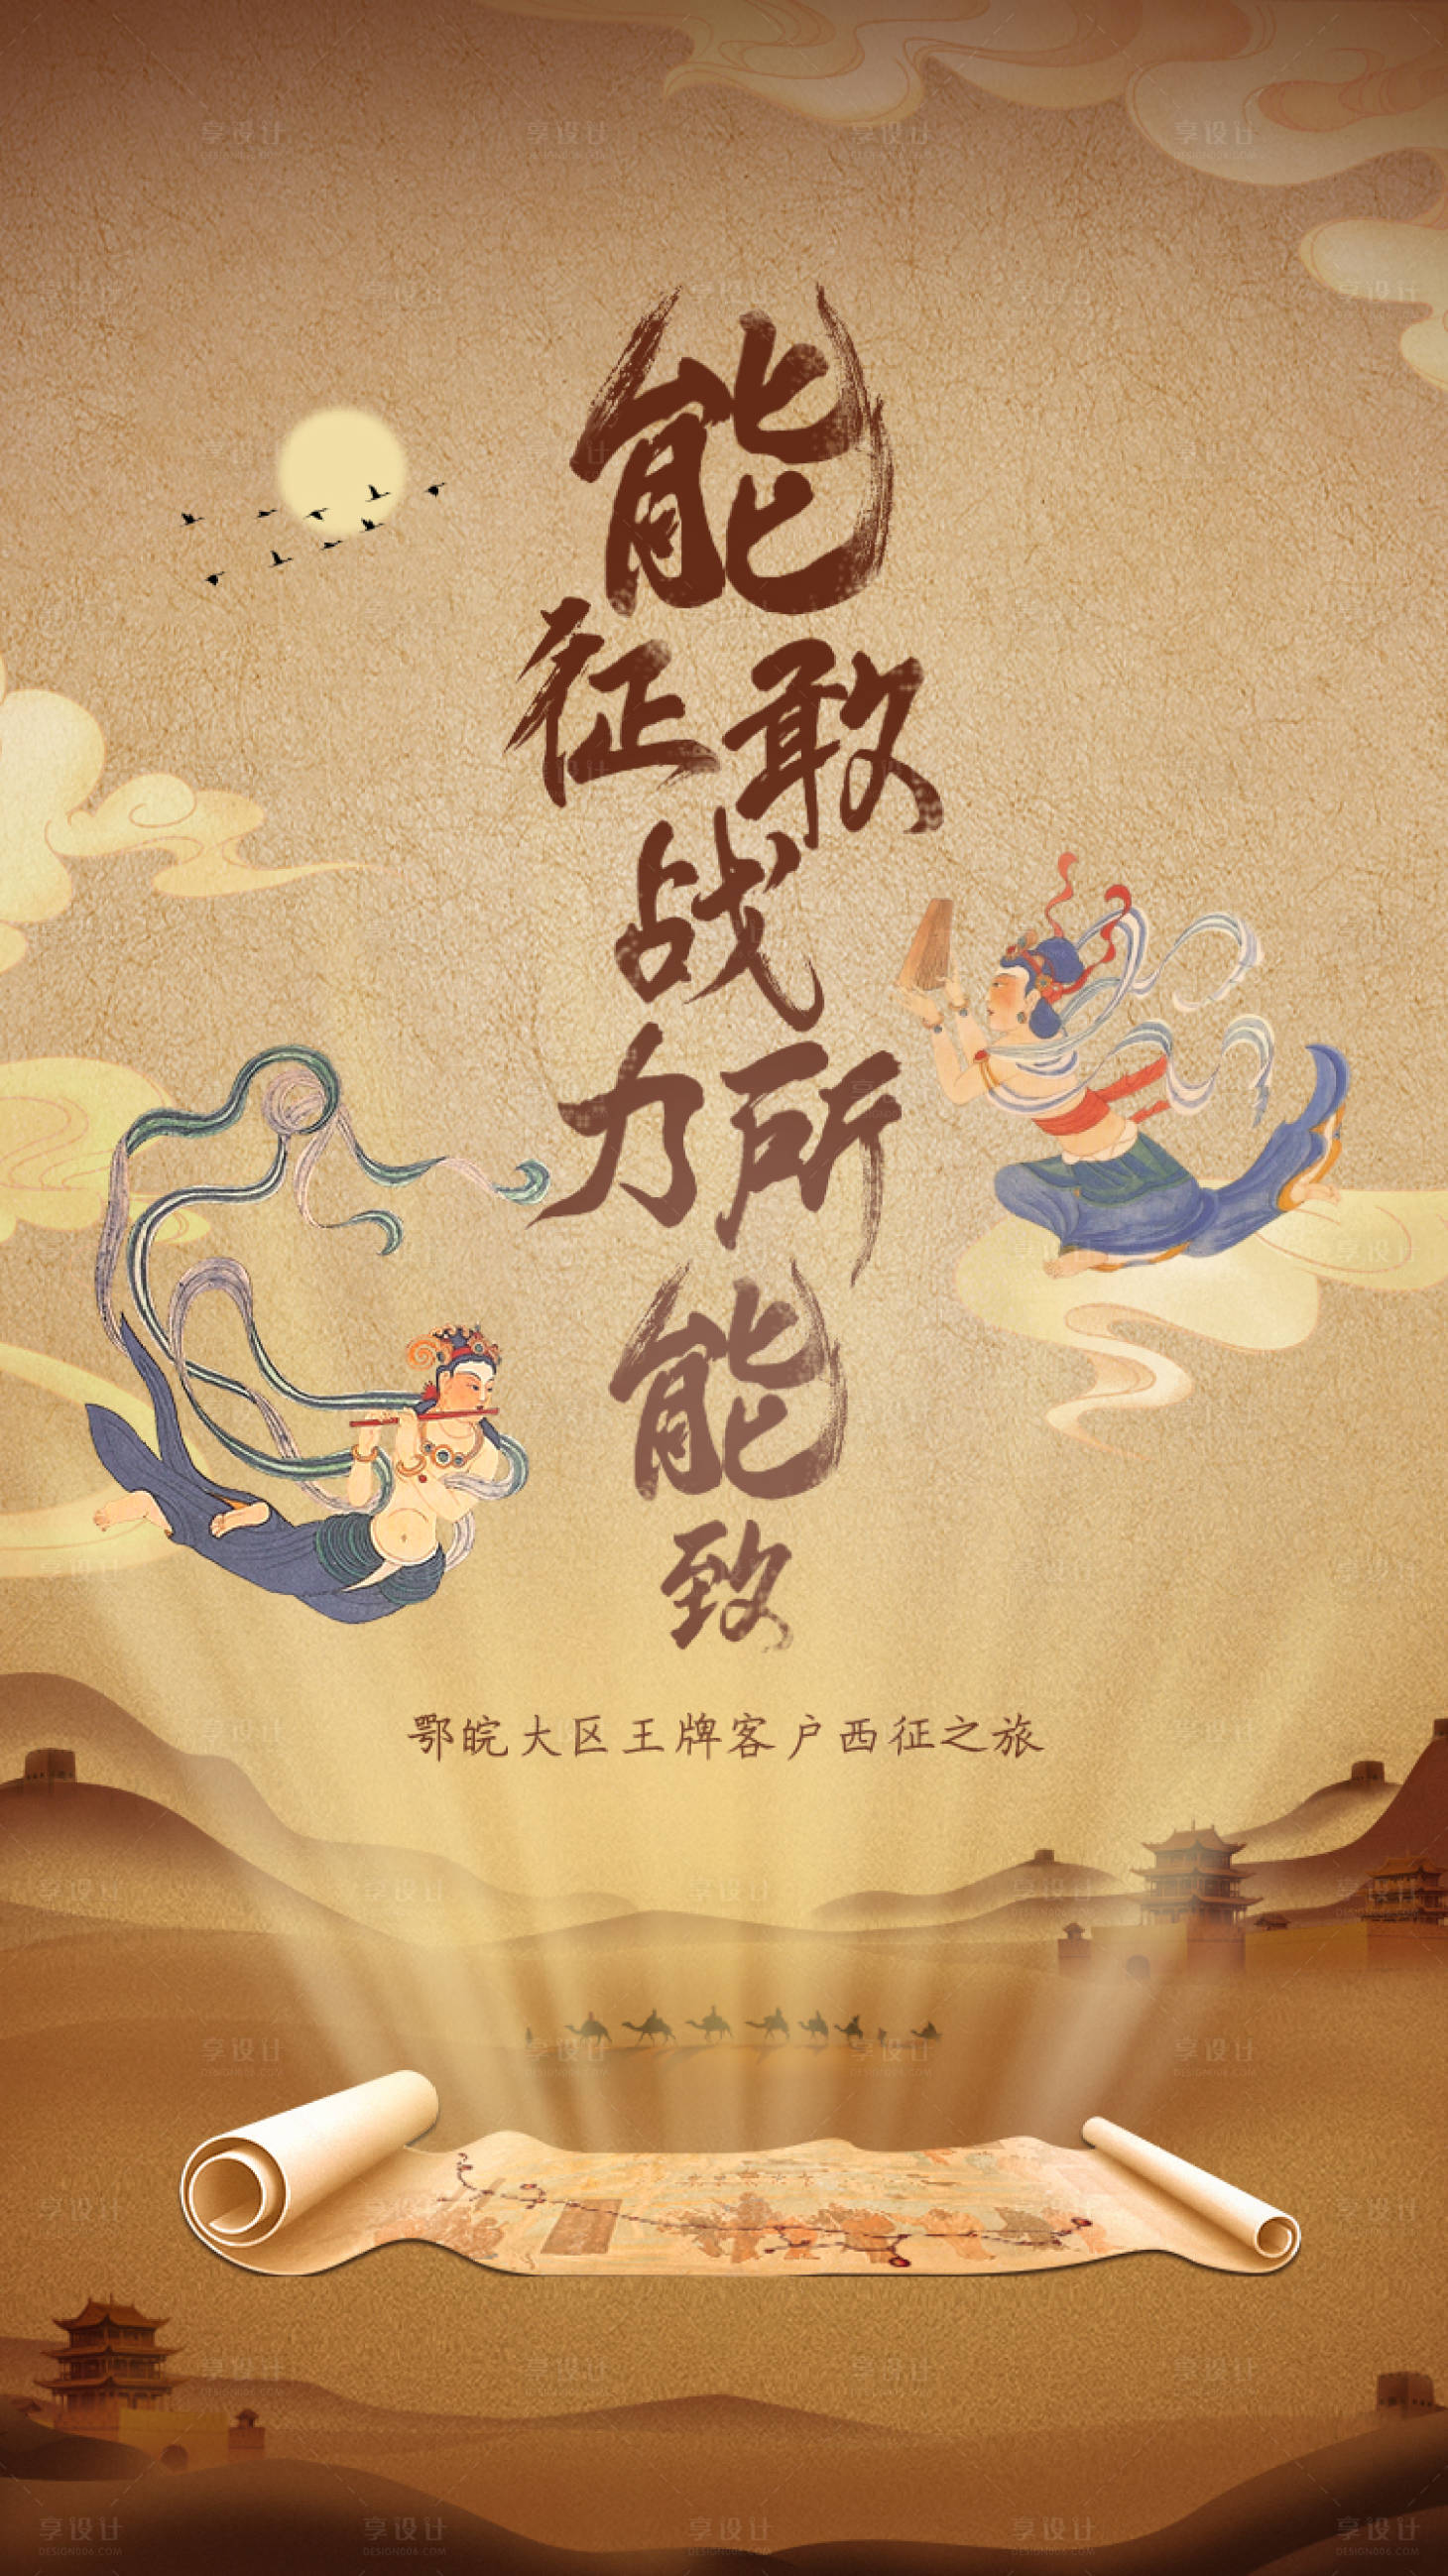 能征敢战
力所能致
鄂皖大区王牌客户西征之旅
享设计
DESIGN006.COM